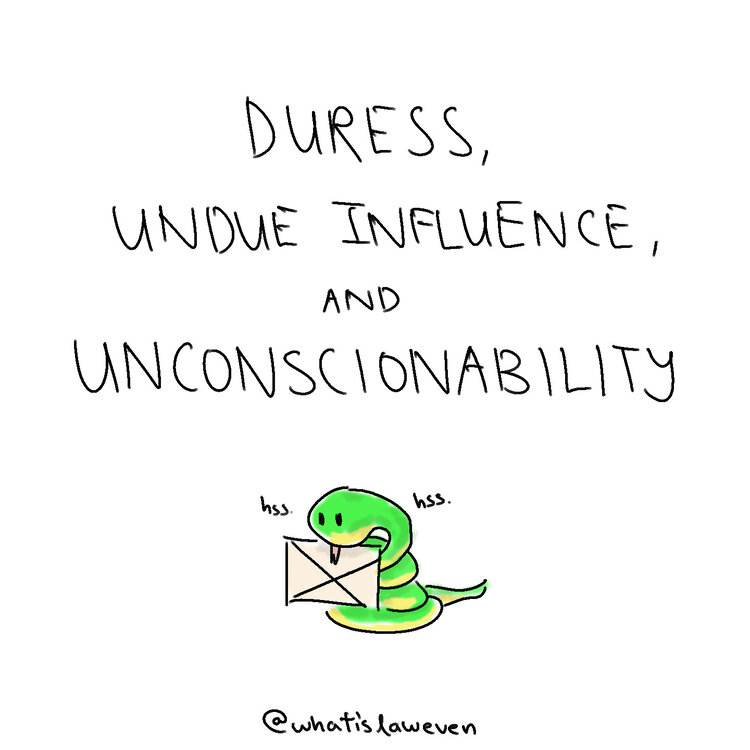 DURESS,
UNDUE INFLUENCE,
AND
UNCONSCIONABILITY
hss. hss.
@whatislaweven